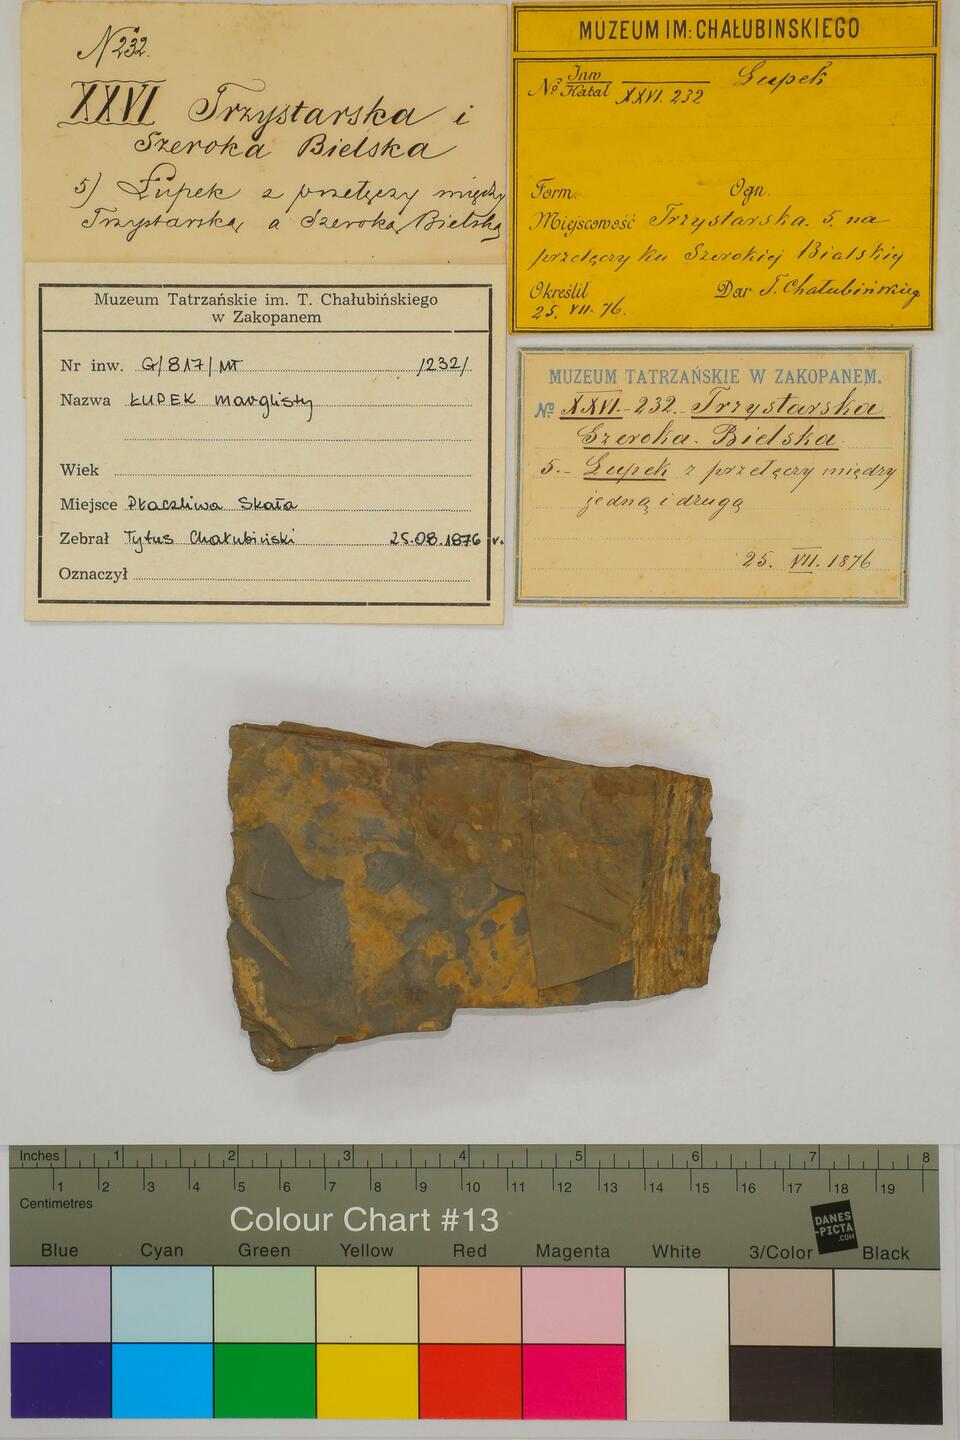 N 232.
XXVI Trzystarska i
Szeroka Bielska
5) Łupek z przełęczy między
Trzystarską a Szeroką Bielską
MUZEUM IM: CHAŁUBINSKIEGO
No Inw
Katal XXVI. 232 Łupek
Form. Ogn.
Miejscowość Trzystarska. 5. na
przełęczy ku Szerokiej Bialskiej
Określił Dar T. Chałubińskiego
25. VII. 76.
Muzeum Tatrzańskie im. T. Chałubińskiego
w Zakopanem
Nr inw. G/817/MT /232/
Nazwa ŁUPEK marglisty
Wiek
Miejsce Płaczliwa Skała
Zebrał Tytus Chałubiński 25.08.1876 r.
Oznaczył
MUZEUM TATRZAŃSKIE W ZAKOPANEM.
No XXVI.-232. Trzystarska
Szeroka. Bielska.
5.- Łupek z przełęczy między
jedną i drugą
25. VII. 1876
Inches 1 2 3 4 5 6 7 8
1 2 3 4 5 6 7 8 9 10 11 12 13 14 15 16 17 18 19
Centimetres
Colour Chart #13
DANES
-PICTA
.COM
Blue Cyan Green Yellow Red Magenta White 3/Color Black